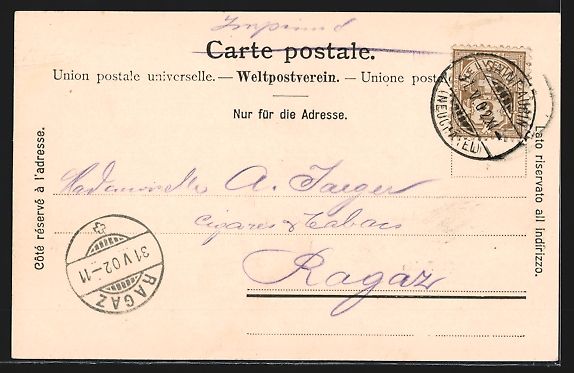 Imprimé
Carte postale.
Union postale universelle. — Weltpostverein. — Unione post
Nur für die Adresse.
Côté réservé à l'adresse.
Lato riservato all indirizzo.
Mademoiselle A. Jaeger
Cigares & Tabacs
Ragaz
(NEUCHÂTEL)
31 V 02 - 11
RAGAZ